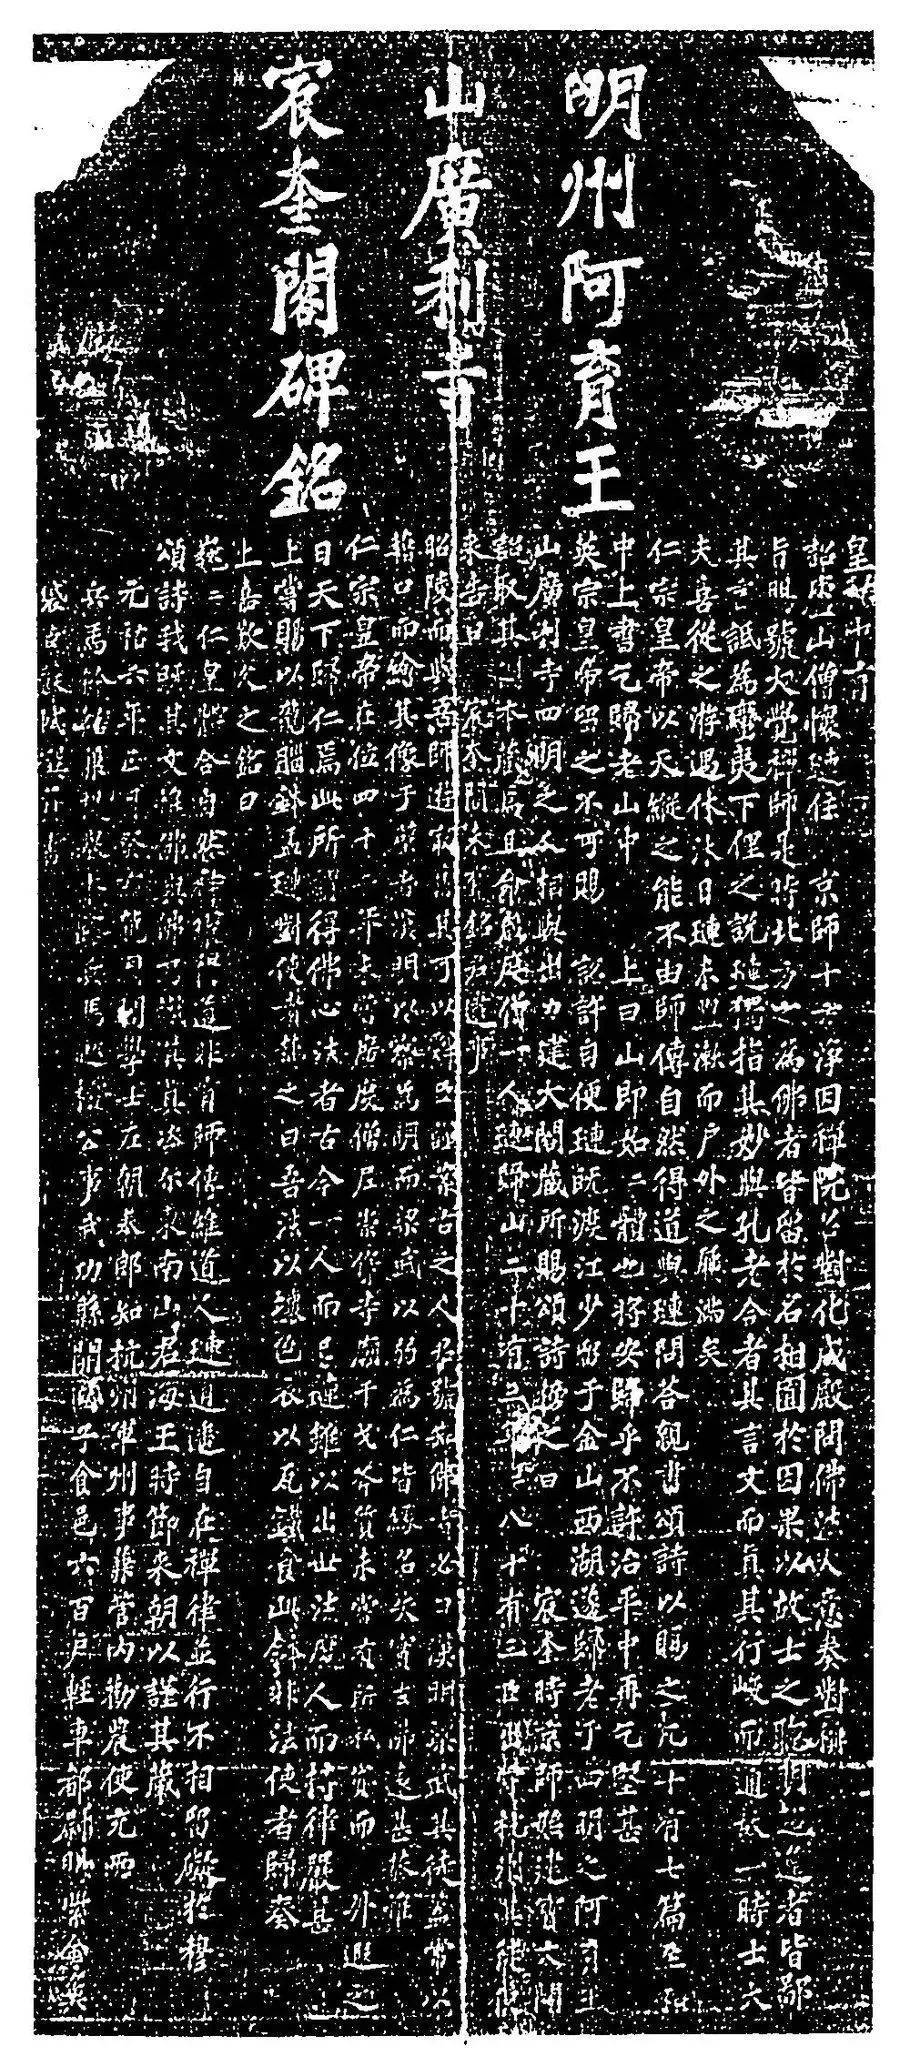 明州阿育王
山廣利寺
宸奎閣碑銘
皇祐中有
詔廬山僧懷璉住 京師十方淨因禪院召對化成殿問佛法大意奏對稱
旨賜號大覺禪師是時北方之為佛者皆留於名相囿於因果以故士之聰明超軼者皆鄙
其言詆為蠻夷下俚之說璉獨指其妙與孔老合者其言文而真其行峻而通故一時士大
夫喜從之游遇休沐日璉未盥漱而戶外之屨滿矣
仁宗皇帝以天縱之能不由師傳自然得道與璉問荅親書頌詩以賜之凡十有七篇至和
中上書乞歸老山中 上曰山即如二體也將安歸乎不許治平中再乞堅甚
英宗皇帝留之不可賜 詔許自便璉既渡江少留于金山西湖遂歸老于四明之阿育王
山廣利寺四明之人相與出力建大閣藏所賜頌詩榜之曰 宸奎時京師始建寶文閣
詔取其副本藏焉且命歲度僧一人璉歸山二十有三年八十有三臣出守杭州其徒使
來告曰 宸奎閣未有銘君逮事
昭陵而與吾師遊最舊其可以辭臣謹案古之人君號知佛者必曰漢明梁武其徒蓋常以
藉口而繪其像于壁者漢明以察為明而梁武以弱為仁皆緣名失實去佛遠甚恭惟
仁宗皇帝在位四十二年未嘗廣度僧尼崇侈寺廟干戈斧質未嘗有所私貸而 升遐之
日天下歸仁焉此所謂得佛心法者古今一人而已璉雖以出世法度人而持律嚴甚
上嘗賜以龍腦鉢盂璉對使者焚之曰吾法以壞色衣以瓦鐵食此鉢非法使者歸奏
上嘉歎久之銘曰
巍二仁皇體合自然神曜得道非有師傳維道人璉逍遙自在禪律並行不相留礙於穆
頌詩我既其文惟佛與佛乃識其真咨爾東南山君海王時節來朝以謹其藏
元祐六年正月癸亥龍圖閣學士左朝奉郎知杭州軍州事兼管內勸農使充兩
兵馬鈐轄兼 兵馬巡檢公事武功縣開國子食邑六百戶輕車都尉賜紫金魚
袋臣蘇軾撰并書